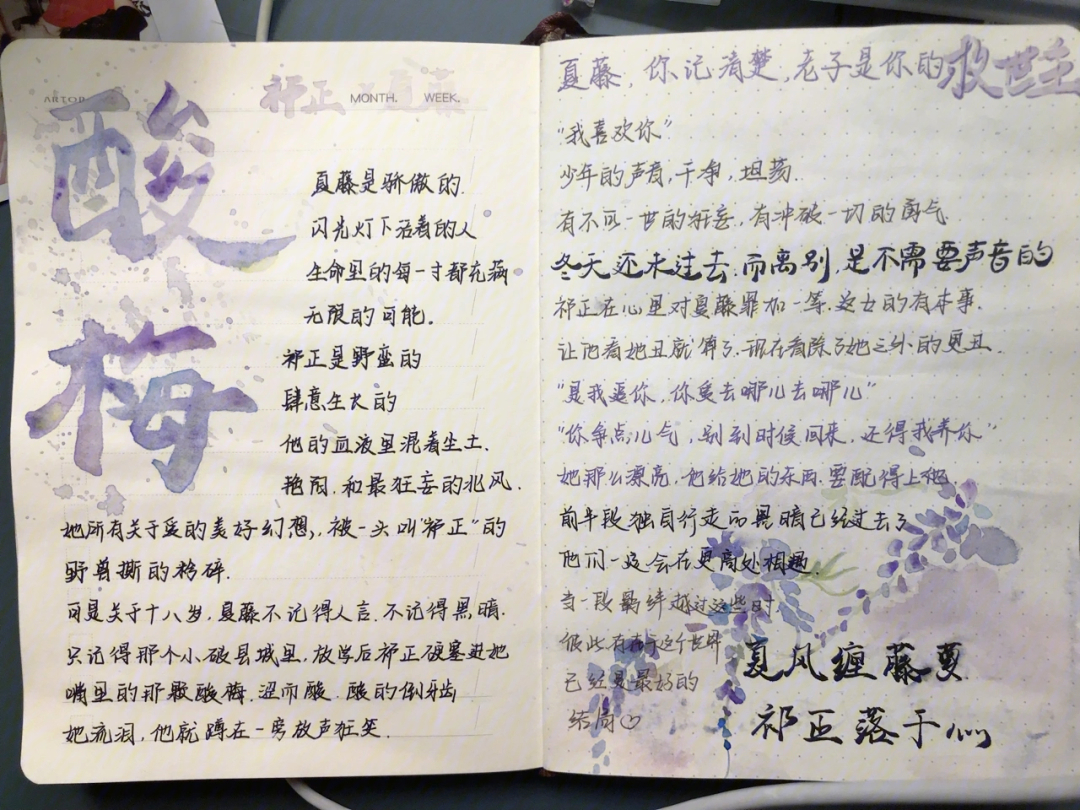 酸梅
祁正 夏藤
MONTH. WEEK.
夏藤是骄傲的
闪光灯下活着的人
生命里的每一寸都充满
无限的可能.
祁正是野蛮的
肆意生长的
他的血液里混着尘土.
艳阳.和最狂妄的北风.
她所有关于爱的美好幻想,被一头叫“祁正”的
野兽撕的粉碎.
可是关于十八岁,夏藤不记得人言.不记得黑暗.
只记得那个小破县城里,放学后祁正硬塞进她
嘴里的那颗酸梅.涩而酸.酸的倒牙齿
她流泪,他就蹲在一旁放声狂笑.
夏藤,你记清楚,老子是你的救世主
“我喜欢你”
少年的声音,干净,坦荡.
有不可一世的狂妄,有冲破一切的勇气
冬天还未过去.而离别,是不需要声音的
祁正在心里对夏藤罪加一等.这女的有本事.
让他看她丑就算了.现在看除了她之外的更丑.
“是我爱你,你爱去哪儿去哪儿”
“你争点儿气,别到时候回来,还得我养你”
她那么漂亮,他给她的东西.要配得上她.
前半段独自行走的黑暗已经过去了
他们一定会在更高处相遇.
当一段羁绊越过这些时
彼此存在于这个世界
已经是最好的
结局♡
夏风缠藤蔓
祁正落于心